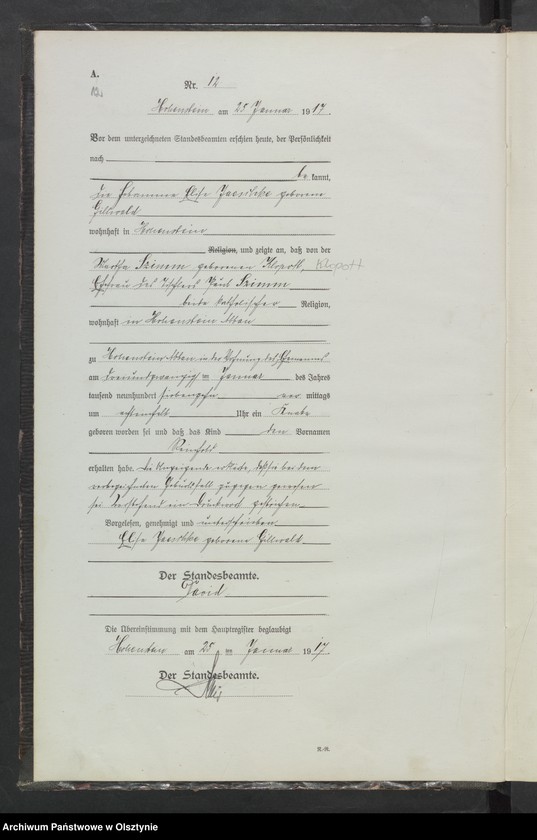 A.
Nr. 12
Hohenstein am 25 Januar 1917.
Vor dem unterzeichneten Standesbeamten erschien heute, der Persönlichkeit
nach
be kannt,
die Hebamme Elise geborene
wohnhaft in Hohenstein
Religion, und zeigte an, daß von der
Martha Szimm geborenen Klopott, Klopott
Ehefrau des Tischlers Paul Szimm
beide katholischer Religion,
wohnhaft in Hohenstein Abbau
zu Hohenstein Abbau in der Wohnung des Ehemannes
am dreiundzwanzigsten Januar des Jahres
tausend neunhundert siebenzehn vor mittags
um Uhr ein Knabe
geboren worden sei und daß das Kind den Vornamen
Reinhold
erhalten habe. Die Anzeigende erklärte, daß sie bei dem
Geburtsfall zugegen gewesen
sei. Vorstehend ein Druckwort gestrichen.
Vorgelesen, genehmigt und unterschrieben
Elise geborene
Der Standesbeamte.
David
Die Übereinstimmung mit dem Hauptregister beglaubigt
Hohenstein am 25 ten Januar 1917.
Der Standesbeamte.
Archiwum Państwowe w Olsztynie